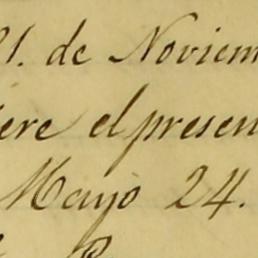 21. de Noviem
ere el presen
Mayo 24.